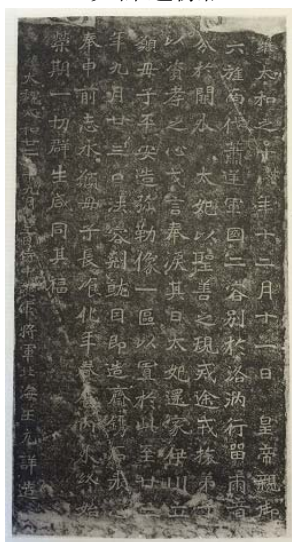 維太和之十八年十二月十一日 皇帝親御
六旌南伐蕭逆軍國二容別於洛汭行留兩音
分於闕外 太妃以聖善之規戒途戒旅弟子
以資孝之心戈言奉淚其日太妃還家伊川立
願母子平安造彌勒像一區以置於此至廿二
年九月廿三日法容剋就因即造齋鐫石表心
奉申前志永願母子長瘳化年眷屬內外終始
榮期一切群生咸同其福
維大魏太和廿二年九月廿三日侍中護軍將軍北海王元詳造